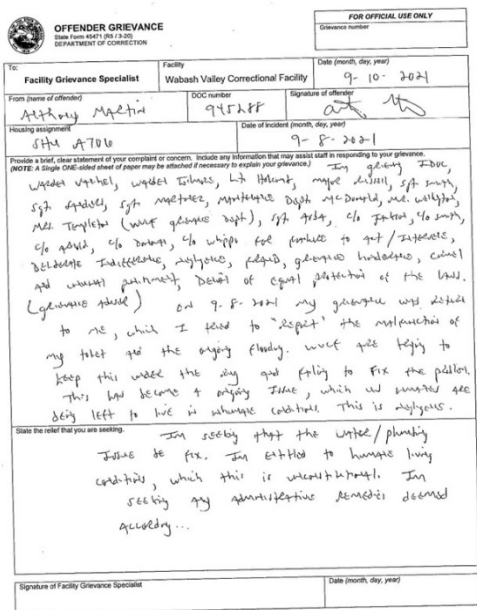 FOR OFFICIAL USE ONLY
OFFENDER GRIEVANCE
State Form 45471 (R5 / 3-20)
DEPARTMENT OF CORRECTION
Grievance number
To:
Facility Grievance Specialist
Facility
Wabash Valley Correctional Facility
Date (month, day, year)
9-10-2021
From (name of offender)
Anthony Martin
DOC number
945288
Signature of offender
Housing assignment
SHU A706
Date of incident (month, day, year)
9-8-2021
Provide a brief, clear statement of your complaint or concern. Include any information that may assist staff in responding to your grievance.
(NOTE: A Single ONE-sided sheet of paper may be attached if necessary to explain your grievance.) Im grieving IDOC,
Warden Vanihel, Warden Gilmore, Lt. Holcomb, major Russell, Sgt Smith,
Sgt Sgt Martinez, Maintenance Dept McDonald, mr. Wellington,
Mrs. Templeton (WVCF grievance Dept), Sgt c/o c/o Smith,
c/o c/o c/o Whipps for failure to act / Intervene,
Deliberate Indifference, Negligence, grievance hinderance, cruel
and unusual punishment, Denial of equal protection of the laws.
(grievance on 9-8-2021 my grievance was return
to me, which I tried to "report" the malfunction of
my toilet and the ongoing flooding. WVCF are trying to
keep this under the rug and failing to fix the problem.
This has become a ongoing Issue, which us inmates are
being left to live in inhumane conditions. This is negligence.
State the relief that you are seeking.
Im seeking that the water/plumbing
Issue be fix. Im entitled to humane living
conditions, which this is unconstitutional. Im
seeking any administrative remedies deemed
according...
Signature of Facility Grievance Specialist
Date (month, day, year)